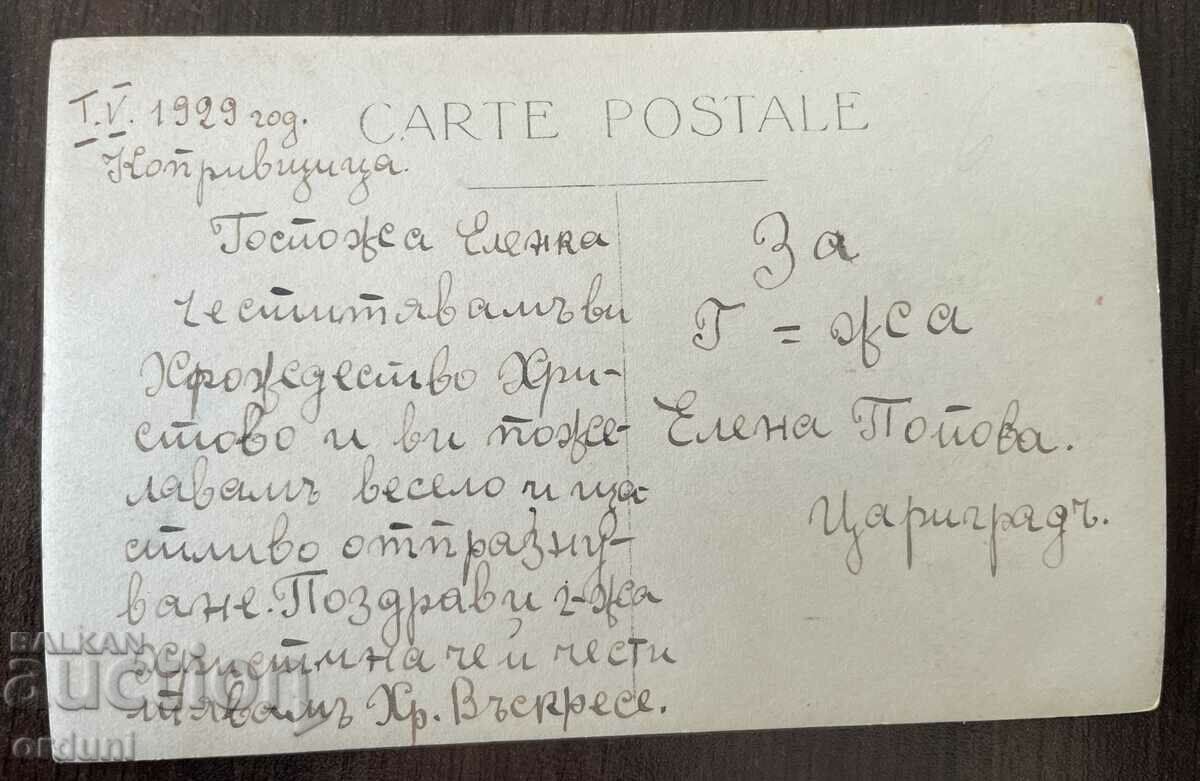 I.V. 1929 год.
Копривщица.
CARTE POSTALE
Госпожа Еленка
честитявамъ ви
Хрождество Хри-
стово и ви поже-
лавамъ весело и ща-
стливо отпразну-
ване. Поздрави г-жа
че и чести
тявамъ Хр. Въскресе.
За
Г = жа
Елена Попова.
Цариградъ.
BALKAN
auction
orduni